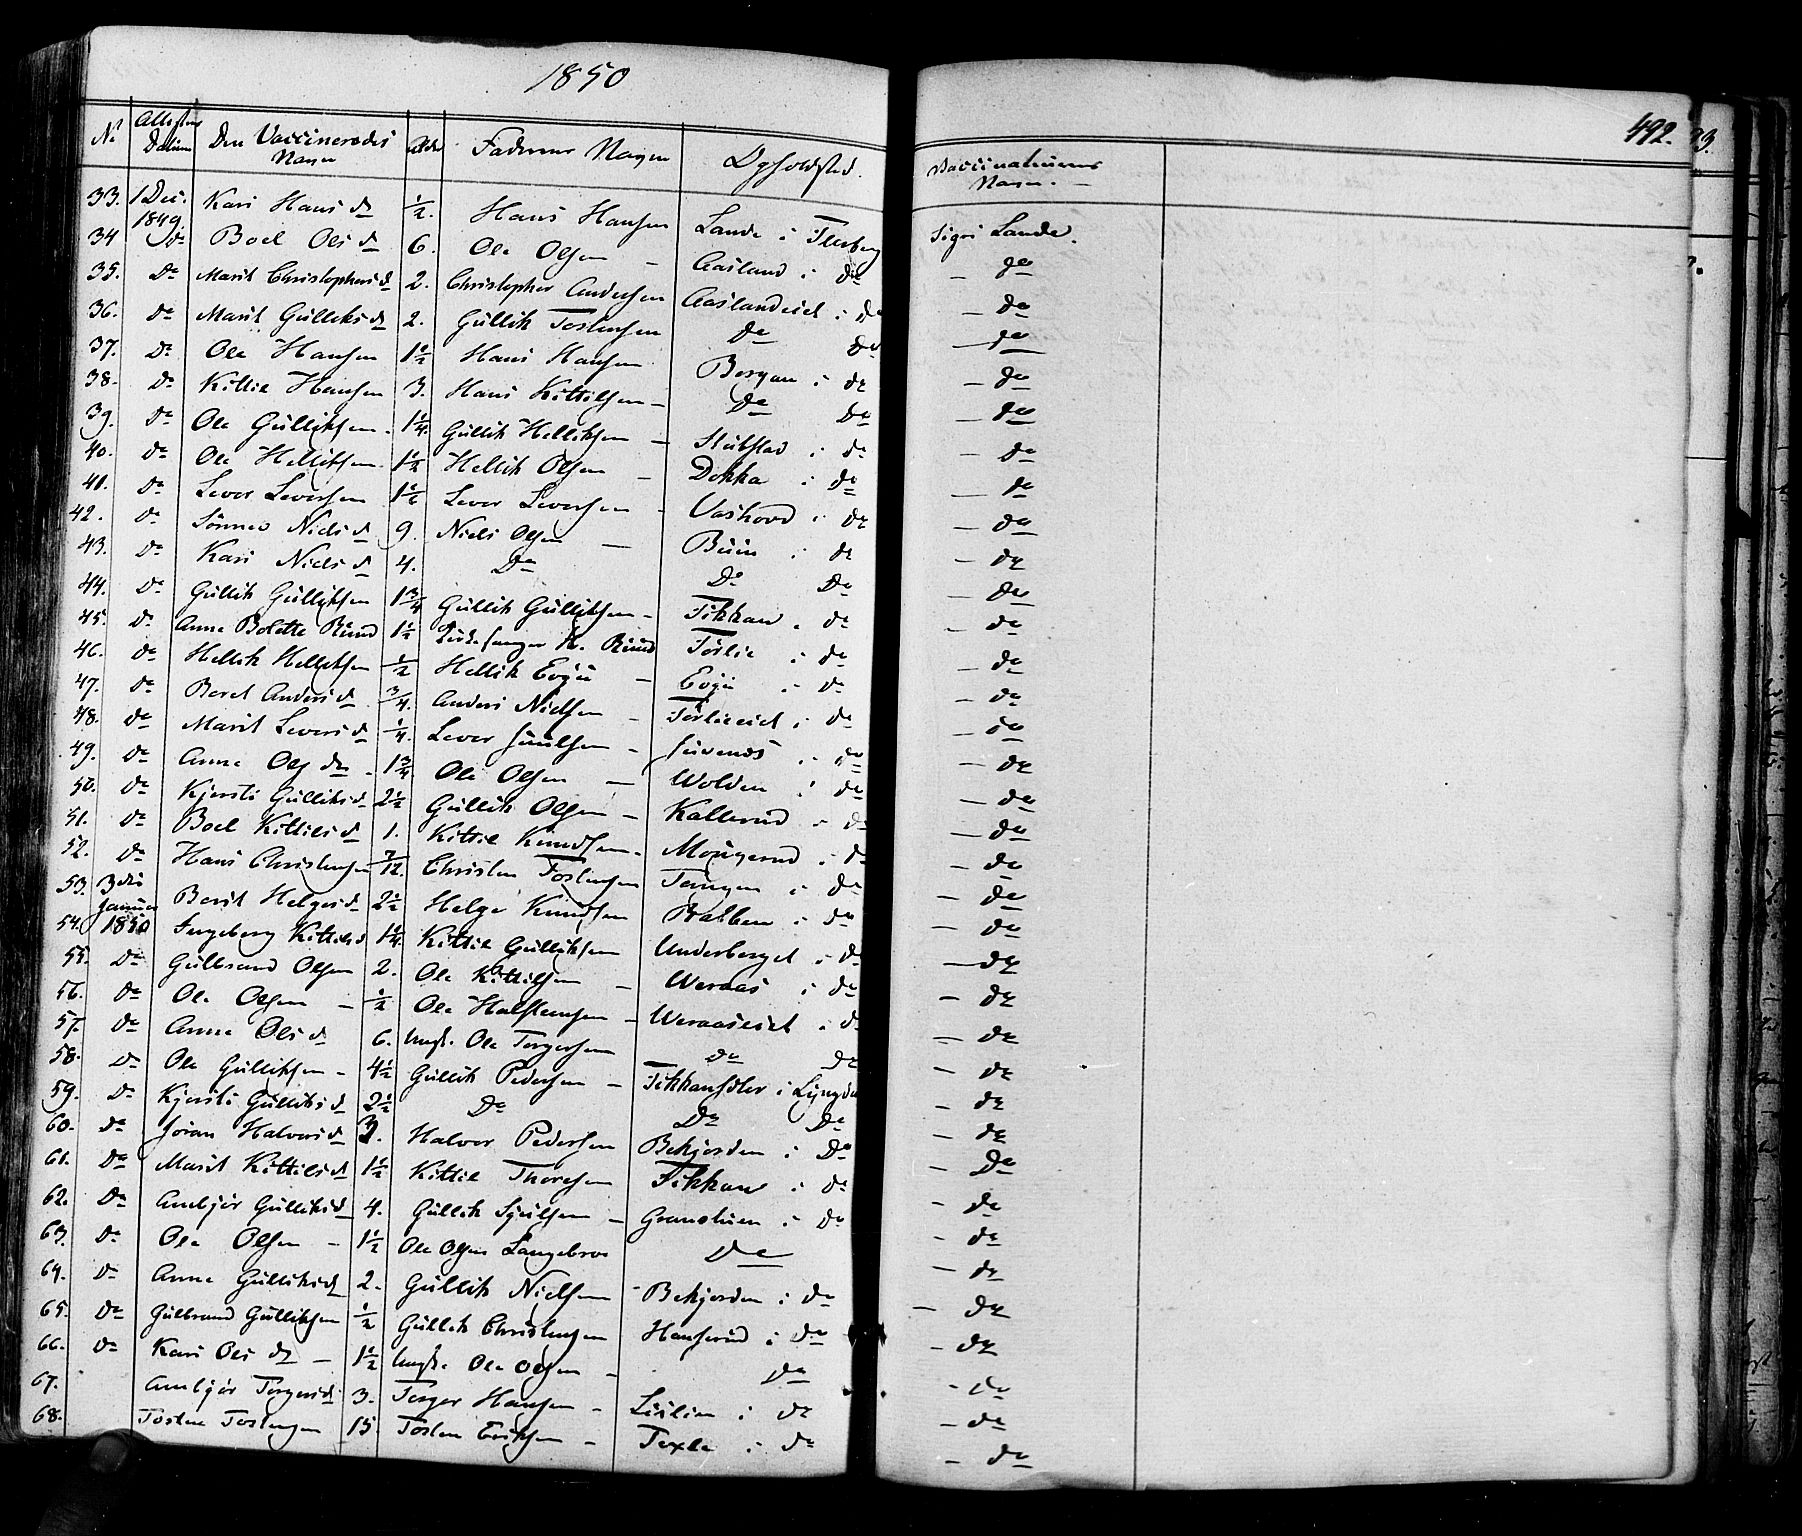 1850
492.
No Attestens Datum Den Vaccineredes Navn Alder Faderens Navn Opholdsted. Vaccinateurens Navn.
33. 1 Dec. 1849 Kari Hansd 1/2. Hans Hansen Lande i Flesberg Sigri Lande.
34 do Boel Olsd 6. Ole Olsen – Aasland i do – do
35. do Marit Christophersd 2. Christopher Andersen Aaslandeiet i do – do
36. do Marit Gulliksd 2. Gullik Tostensen do do – do
37. do Ole Hansen 1 1/2 Hans Hansen Bergan i do – do
38. do Kittil Hansen 3. Hans Kittilsen – do do – do
39. do Ole Gulliksen. 1 1/4. Gullik Helliksen – Stutstad i do – do
40. do Ole Helliksen. 1 1/2 Hellik Olsen – Dokka i do – do
41. do Lever Leversen 1 1/2 Lever Leversen – Vashovd i do – do
42. do Sønnev Nielsd 9. Niels Olsen – Buin i do – do
43. do Kari Nielsd 4. Do Do Do – do
44. do Gullik Gulliksen 1 3/4 Gullik Gulliksen – Fikkan i do – do
45. do Anne Bolette Ruud 1 1/2 Kirkesanger H. Ruud Tørlie i do – do
46. do Hellik Helliksen 1/2 Hellik Evju – Evju i do – do
47. do Beret Andersd 3/4 Anders Nielsen – Tørlieeiet i do – do
48. do Marit Leversd 1/4. Lever Juulsen – Juvenes i do – do
49. do Anne Olsdr 1 3/4 Ole Olsen – Wolden i do – do
50. do Kjersti Gulliksd 2 1/2 Gullik Olsen – Kallerud i do – do
51. do Boel Kittilsd 1. Kittil Knudsen. Mougerud i do – do
52. do Hans Christensen 7/12. Christen Tostensen Tangen i do – do
53. 3die Januar 1850 Berit Helgesd 2 1/2 Helge Knudsen Bakken i do – do
54. Ingeborg Kittilsd 1 1/4. Kittil Gulliksen Underberget i do – do
55. do Gulbrand Olsen 2. Ole Kittilsen – Weraas i do – do
56. do Ole Olsen – 1/2 Ole Halstensen – Weraaseiet i do – do
57. do Anne Olsd 6. Ungk. Ole Torgersen do do – do
58. do Ole Gulliksen – 4 1/2 Gullik Pedersen – Fikkansæter i Lyngdal – do
59. do Kjersti Gulliksd 2 1/2 Do Do Do – do
60. do Jøran Halvorsd 3. Halvor Pedersen Bekjorden i Do – do
61. Do Marit Kittilsd 1 1/2 Kittil Thoresen Fikkan i do – Do
62. Do Ambjør Gulliksd 4. Gullik Sjulsen – Granstuen i do – do
63. do Ole Olsen – 1 1/2 Ole Olsen Langebroe Do – do
64. do Anne Gulliksd 2. Gullik Nielsen – Bekjorden i do – do
65. Do Gulbrand Gulliksen 1/2 Gullik Christensen Hanserud i do – do
66. do Kari Olsd – 1 1/2 Ungk. Ole Olsen – do – do
67. Ambjør Torgersd 3. Torger Hansen – Liulien i do – do
68. Tosten Tostensen 15. Tosten Eriksen – Texle i do – do
– do